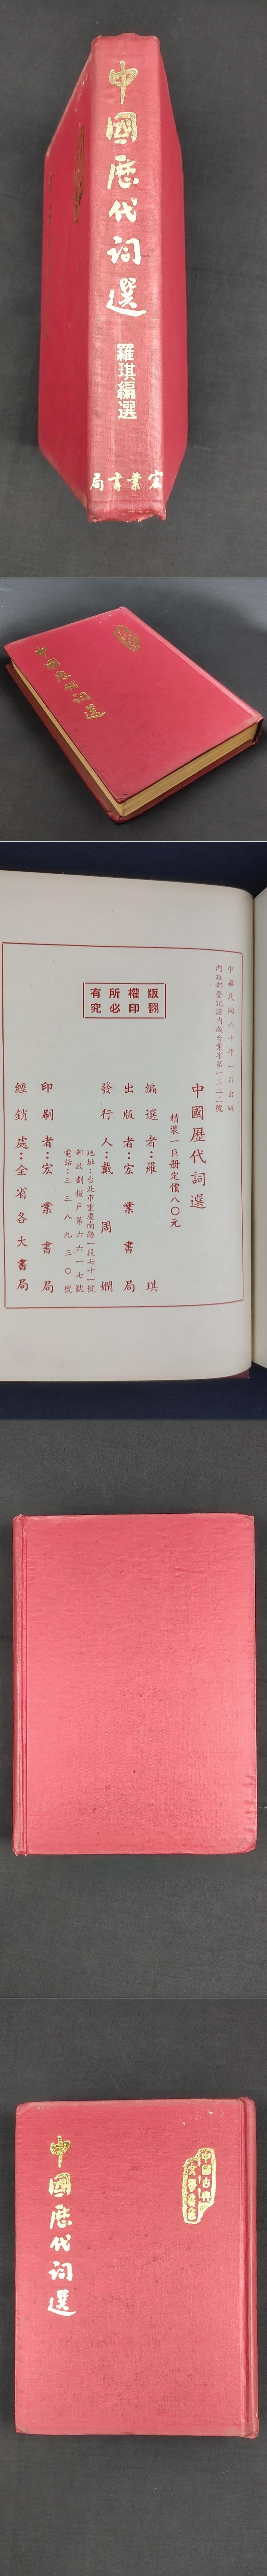 中國歷代詞選
羅琪編選
宏業書局
中國歷代詞選
中華民國六十年一月出版
內政部登記證內版台業字第一三二二號
版權所有
翻印必究
中國歷代詞選
精裝一巨冊定價八〇元
編選者：羅琪
出版者：宏業書局
發行人：戴周嫺
地址：台北市重慶南路一段七十一號
郵政劃撥戶第六六一七號
電話：三三八九三〇號
印刷者：宏業書局
經銷處：全省各大書局
中國古典
中國歷代詞選